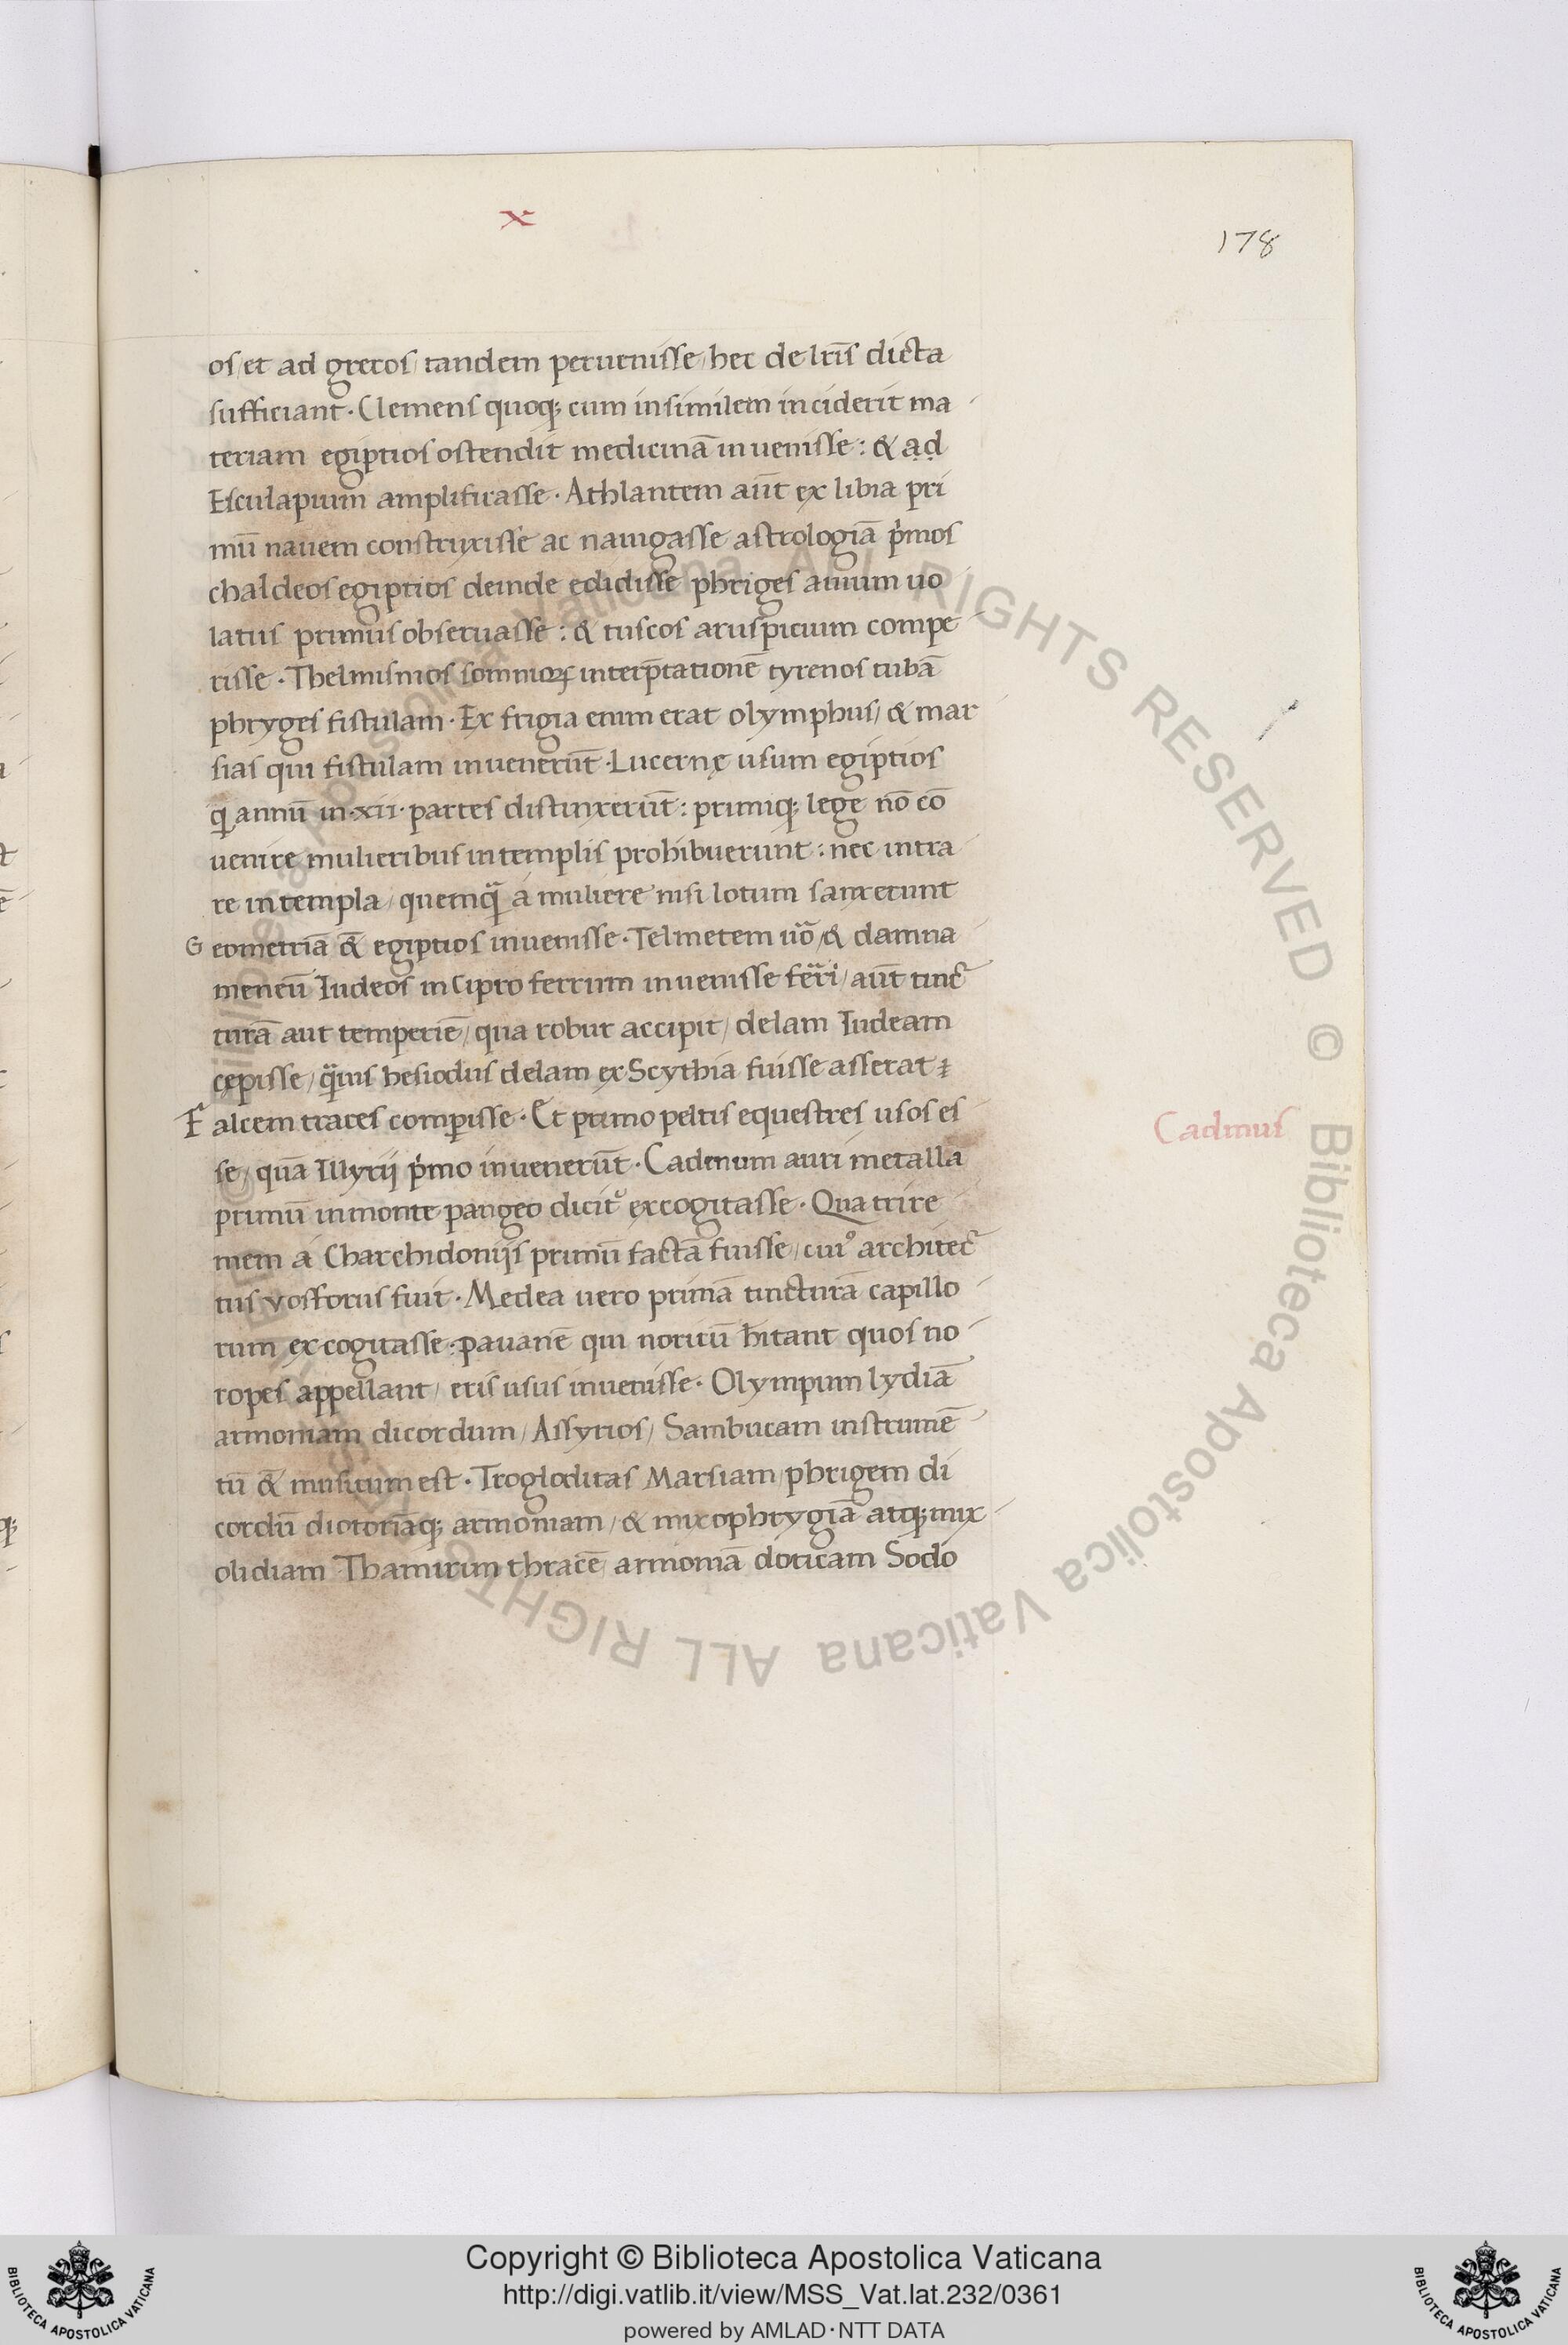 x
178
os/et ad grecos/tandem peruenisse/hec de lr̄is dicta
sufficiant· Clemens quoq; cum in similem inciderit ma
teriam egiptios ostendit medicinā inuenisse: & ad
Esculapium amplificasse· Athlantem aūt ex libia pri
mū nauem construxisse ac nauigasse astrologiā p̓mos
chaldeos egiptios deinde edidisse phriges auium uo
latus primus obseruasse: & tuscos aruspicium compe
risse· Thelmismos somnioꝝ interp̄tationē tyrenos tubā
phryges fistulam· Ex frigia enim erat olymphus/ & mar
sias qui fistulam inuenerūt· Lucernę usum egiptios
q̓ annū in·xii·partes distinxerūt: primiq; lege nō cō
uenire mulieribus in templis prohibuerunt: nec intra
re in templa/quemq̄ á muliere nisi lotum sanxerunt
Geometriā & egiptios inuenisse· Telmetem u̓o/& damna
meneū Iudeos in cipro ferrum inuenisse feri/aūt tinc̄
turā aut temperiē/qua robur accipit/delam Iudeam
cępisse/q̄uis hesiodus delam ex Scythia fuisse asserat
Falcem traces comp̱isse· Et primo peltis equestres usos es
se/quā Illyrij p̓mo inuenerūt· Cadmum auri metalla
primū in monte pangeo dicit᷑ excogitasse· Qua trire
mem á Charchidonijs primū factā fuisse/cui᷒ architec̄
tus vosforus fuit· Medea uero primā tincturā capillo
rum excogitasse: pauanē qui noricū hītant quos no
ropes appellant/eris usus inuenisse· Olympum lydiā
armoniam dicordum/Assyrios/Sambucam instrumē
tū & musicum est· Trogloditas Marsiam/phrigem di
cordū diotoriāq; armoniam/& mixophrygiā atq; mix
olidiam Thamirim thracē/armoniā doricam Sodo
Cadmus
Copyright © Biblioteca Apostolica Vaticana
http://digi.vatlib.it/view/MSS_Vat.lat.232/0361
powered by AMLAD·NTT DATA
BIBLIOTECA APOSTOLICA VATICANA
BIBLIOTECA APOSTOLICA VATICANA
© Biblioteca Apostolica Vaticana ALL RIGHTS RESERVED © Biblioteca Apostolica Vaticana ALL RIGHTS RESERVED